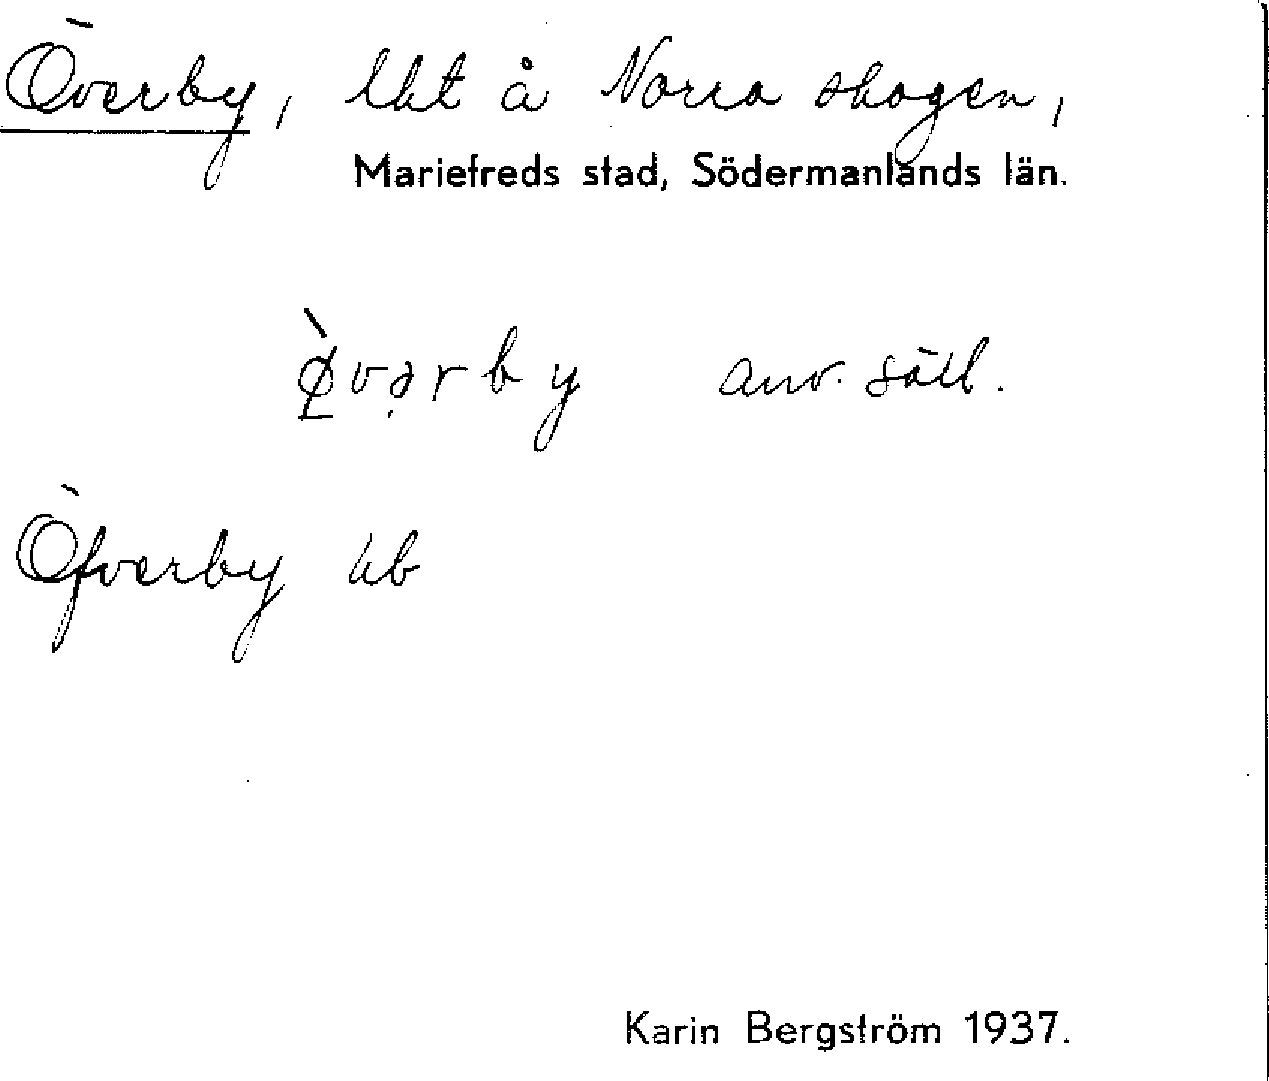 Överby, lht å Norra skogen,
Mariefreds stad, Södermanlands län.
ø̀vərby anv. säll.
Öfverby
Karin Bergström 1937.